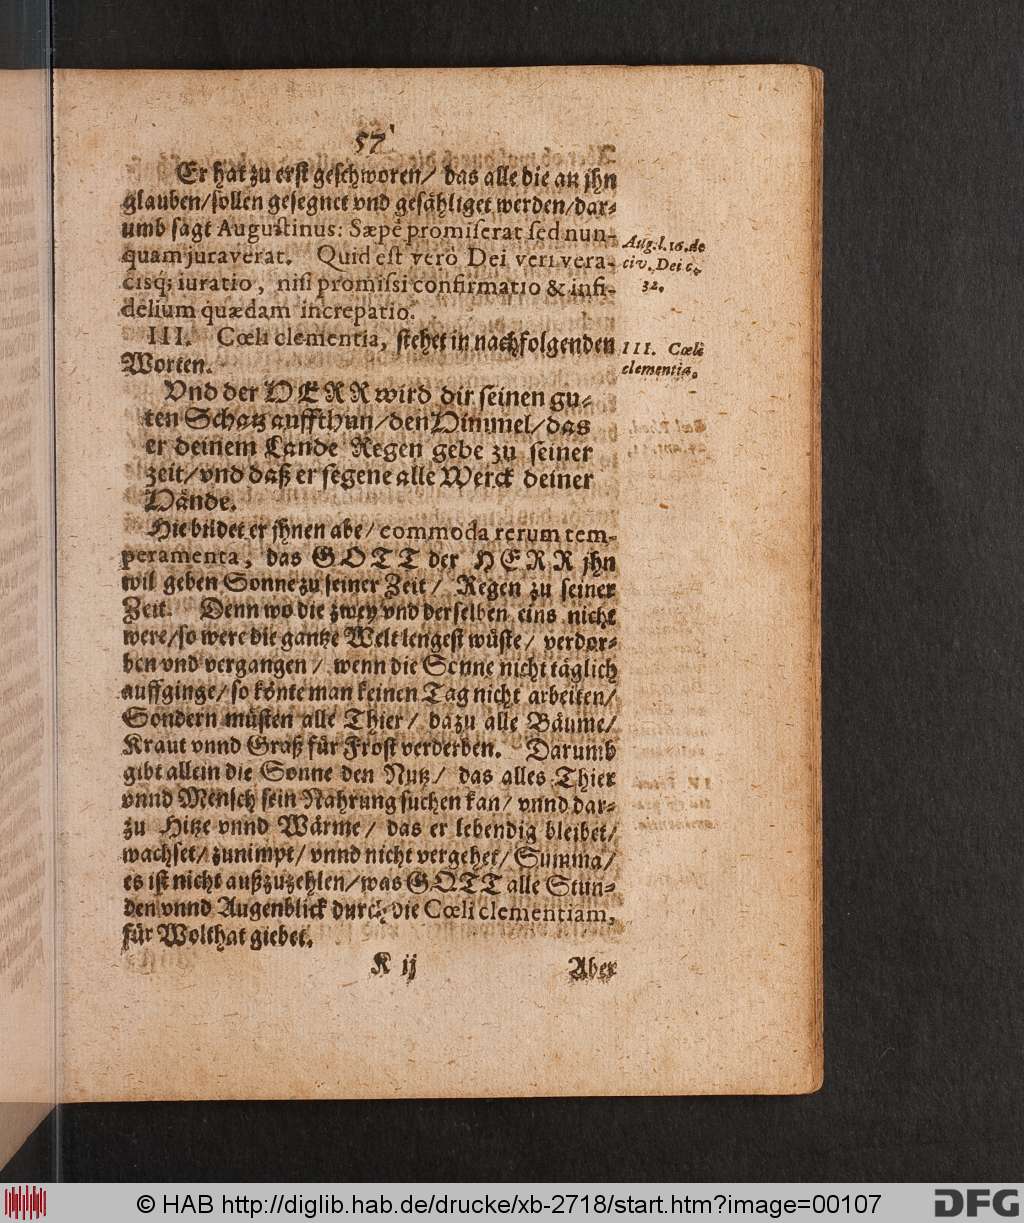 57
Er hat zu erst geschworen/ das alle die an jhn
glauben/sollen gesegnet vnd gesähliget werden/dar-
umb sagt Augustinus: Sæpè promiserat sed nun-
quam juraverat. Quid est verò Dei veri vera-
cisq; iuratio, nisi promissi confirmatio & infi-
delium quædam increpatio.
Aug. l. 16. de
civ. Dei c.
32.
III. Cœli clementia, stehet in nachfolgenden
Worten.
III. Cœli
clementia.
Vnd der HERR wird dir seinen gu-
ten Schatz auffthun/den Himmel/das
er deinem Lande Regen gebe zu seiner
zeit/vnd daß er segene alle Werck deiner
Hände.
Hie bildet er jhnen abe/ commoda rerum tem-
peramenta, das GOTT der HERR jhn
wil geben Sonne zu seiner Zeit/ Regen zu seiner
Zeit. Denn wo die zwey vnd derselben eins nicht
were/so were die gantze Welt lengest wüste/ verdor-
ben vnd vergangen/ wenn die Sonne nicht täglich
auffginge/ so könte man keinen Tag nicht arbeiten/
Sondern müsten alle Thier/ dazu alle Bäume/
Kraut vnnd Graß für Frost verderben. Darumb
gibt allein die Sonne den Nutz/ das alles Thier
vnnd Mensch sein Nahrung suchen kan/ vnnd dar-
zu Hitze vnnd Wärme/ das er lebendig bleibet/
wachset/ zunimpt/ vnnd nicht vergehet/ Summa/
es ist nicht außzuzehlen/was GOTT alle Stun-
den vnnd Augenblick durch die Cœli clementiam,
für Wolthat giebet.
K ij
Aber
© HAB http://diglib.hab.de/drucke/xb-2718/start.htm?image=00107
DFG